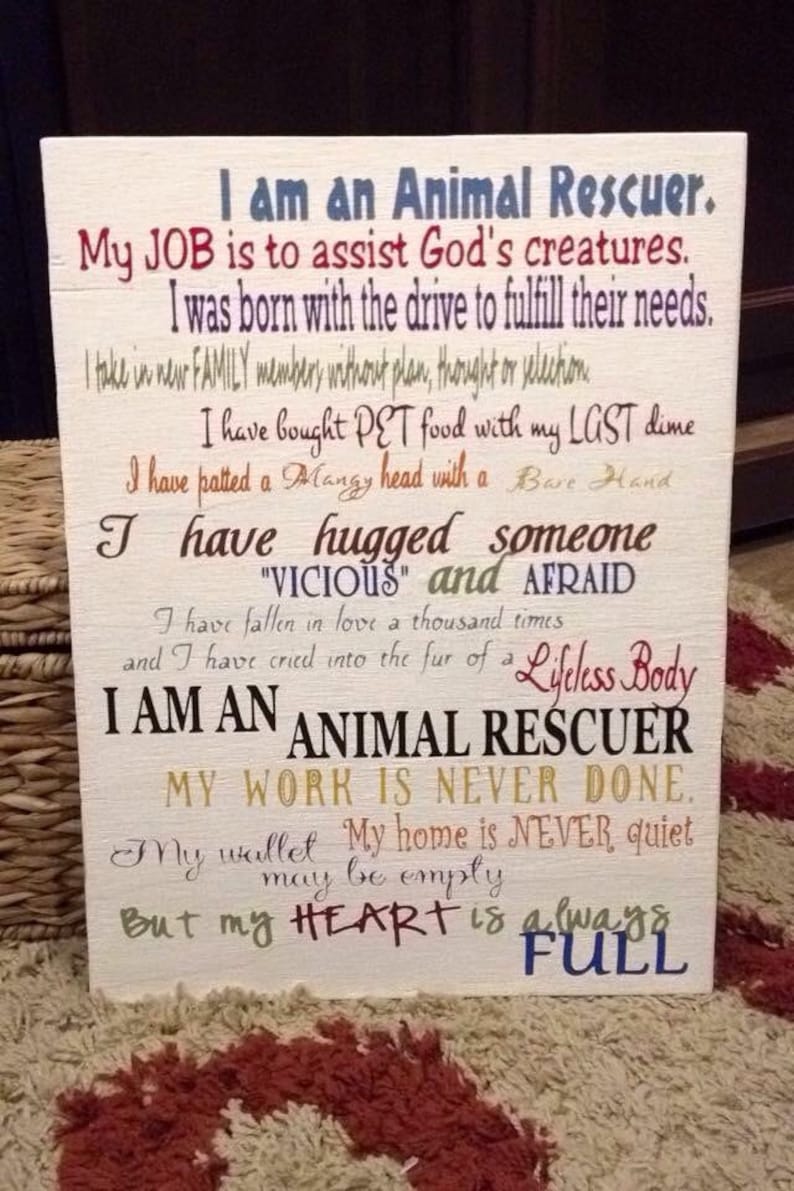 I am an Animal Rescuer.
My JOB is to assist God's creatures.
I was born with the drive to fulfill their needs.
I take in new FAMILY members without plan, thought or selection.
I have bought PET food with my LAST dime
I have patted a Mangy head with a Bare Hand
I have hugged someone
"VICIOUS" and AFRAID
I have fallen in love a thousand times
and I have cried into the fur of a Lifeless Body
I AM AN ANIMAL RESCUER
MY WORK IS NEVER DONE.
My home is NEVER quiet
My wallet
may be empty
But my HEART is always
FULL